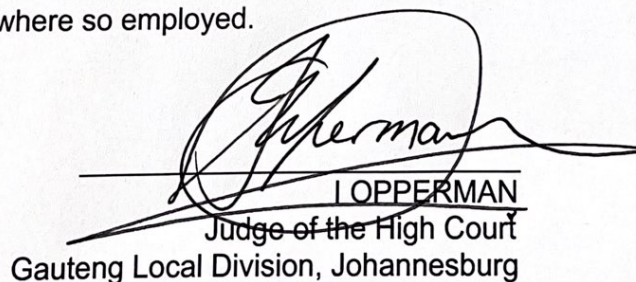 where so employed.
Opperman
I OPPERMAN
Judge of the High Court
Gauteng Local Division, Johannesburg